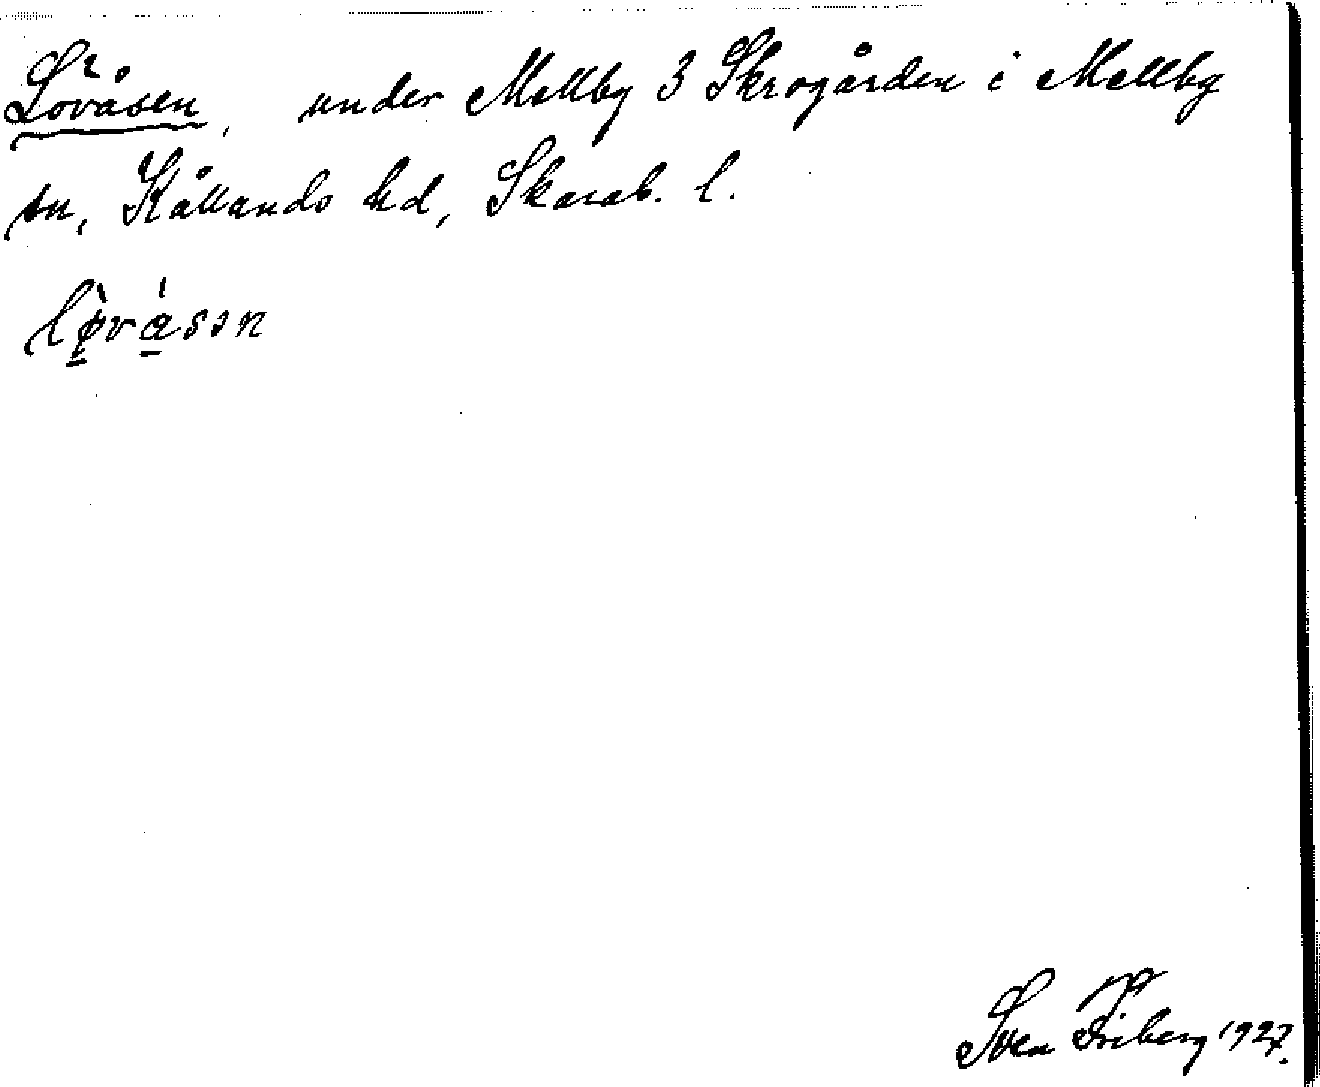 Lövåsen, under Mellby 3 Skrogården i Mellby
sn, Kållands hd, Skarab. l.
Sven Friberg 1927.